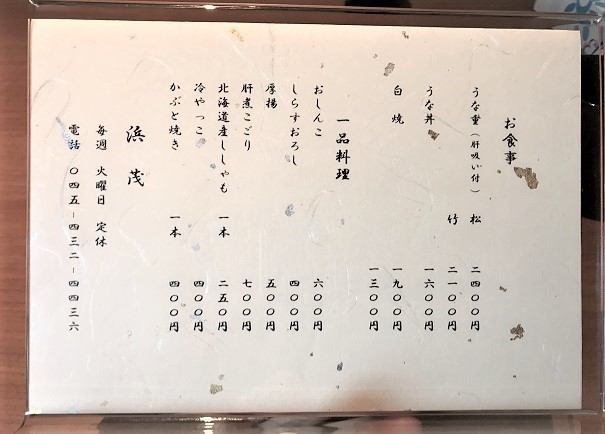 お食事
うな重(肝吸い付) 松 二四〇〇円
竹 二一〇〇円
うな丼 一六〇〇円
白焼 一九〇〇円
一三〇〇円
一品料理
おしんこ 六〇〇円
しらすおろし 四〇〇円
厚揚 五〇〇円
肝煮こごり 七〇〇円
北海道産ししゃも 一本 二五〇円
冷やっこ 四〇〇円
かぶと焼き 一本 四〇〇円
浜茂
毎週 火曜日 定休
電話 〇四五-四三二-四四三六